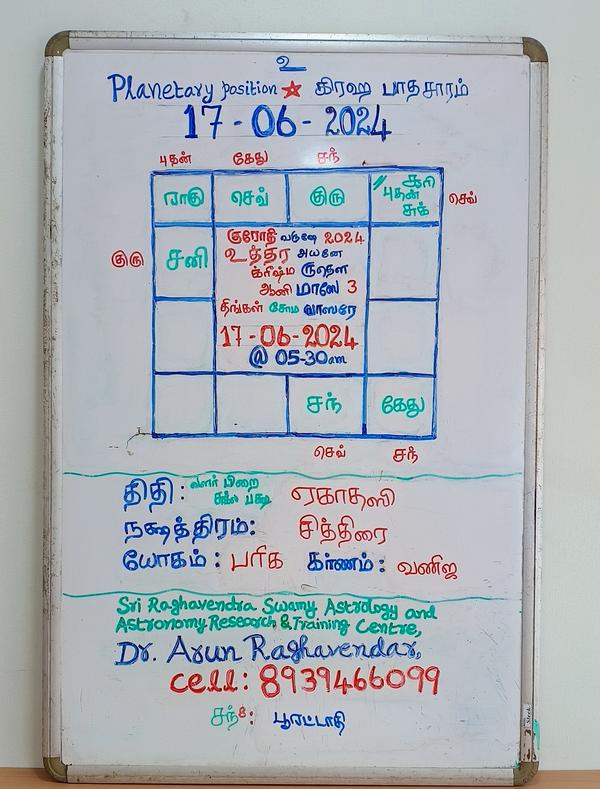 உ
Planetary position ★ கிரஹ பாதசாரம்
17-06-2024
புதன் கேது சந்
ராகு செவ் குரு சூரி புதன் சுக் செவ்
குரு சனி
குரோதி வருஷ 2024
உத்தர அயனே
க்ரிஷ்ம ருதௌ
ஆனி மாஸே 3
திங்கள் சோம வாஸரே
17-06-2024
@ 05-30am
சந் கேது
செவ் சந்
திதி: வளர் பிறை சுக்ல பக்ஷ ஏகாதஸி
நக்ஷத்திரம்: சித்திரை
யோகம்: பரிக கர்ணம்: வணிஜ
Sri Raghavendra Swamy Astrology and
Astronomy Research & Training Centre,
Dr. Arun Raghavendar,
cell: 8939466099
சந்8: பூரட்டாதி